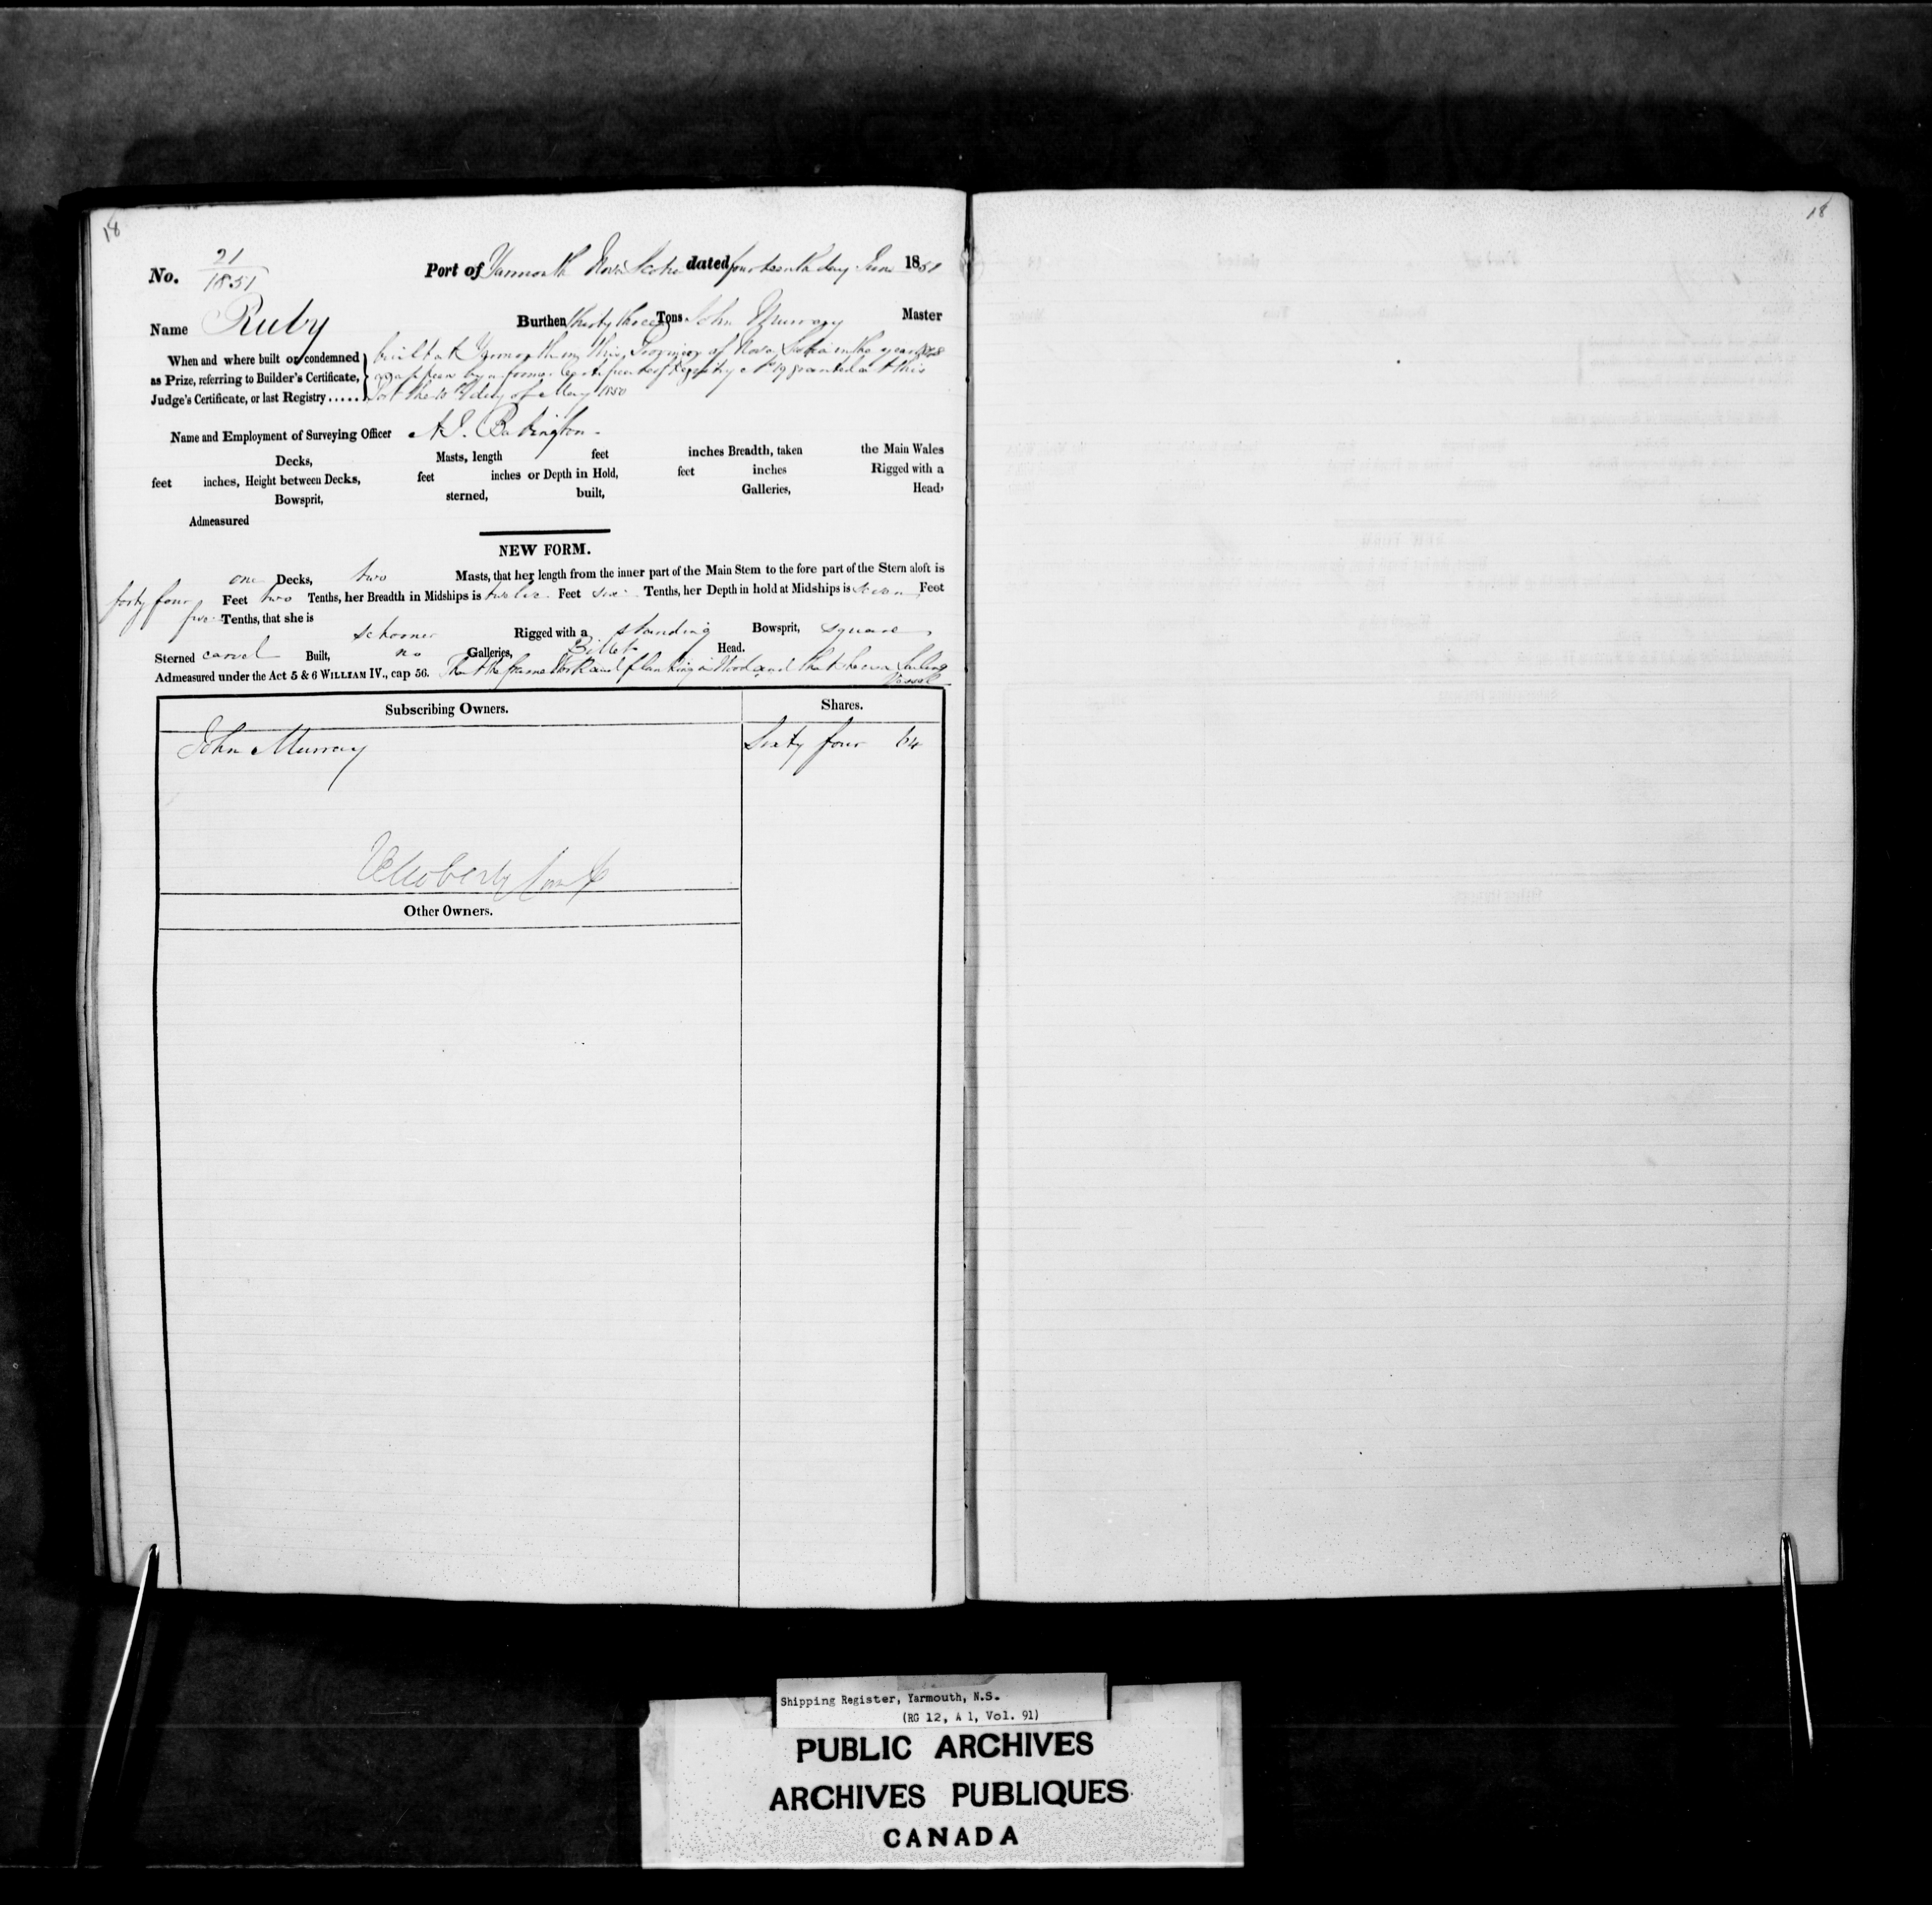 18
18
No. 21
1851
Port of Yarmouth Nova Scotia dated fourteenth day June 1851
Name Ruby Burthen thirty three Tons John Murray Master
When and where built or condemned built at Yarmouth in this Province of Nova Scotia in the year 1848
as Prize, referring to Builder's Certificate, as appears by a former Certificate of Registry No 19 granted at this
Judge's Certificate, or last Registry ..... Port the day of May 1850
Name and Employment of Surveying Officer A. J. Babington.
Decks, Masts, length feet inches Breadth, taken the Main Wales
feet inches, Height between Decks, feet inches or Depth in Hold, feet inches Rigged with a
Bowsprit, sterned, built, Galleries, Head,
Admeasured
NEW FORM.
one Decks, two Masts, that her length from the inner part of the Main Stem to the fore part of the Stern aloft is
forty four Feet two Tenths, her Breadth in Midships is twelve Feet six Tenths, her Depth in hold at Midships is seven Feet
five Tenths, that she is schooner Rigged with a standing Bowsprit, square
Sterned carvel Built, no Galleries, Billet Head.
Admeasured under the Act 5 & 6 WILLIAM IV., cap 56. That the frame Work and planking is Wood and that she is a Sailing
Vessel
Subscribing Owners. Shares.
John Murray Sixty four 64
Other Owners.
Shipping Register, Yarmouth, N.S.
(RG 12, A 1, Vol. 91)
PUBLIC ARCHIVES
ARCHIVES PUBLIQUES
CANADA